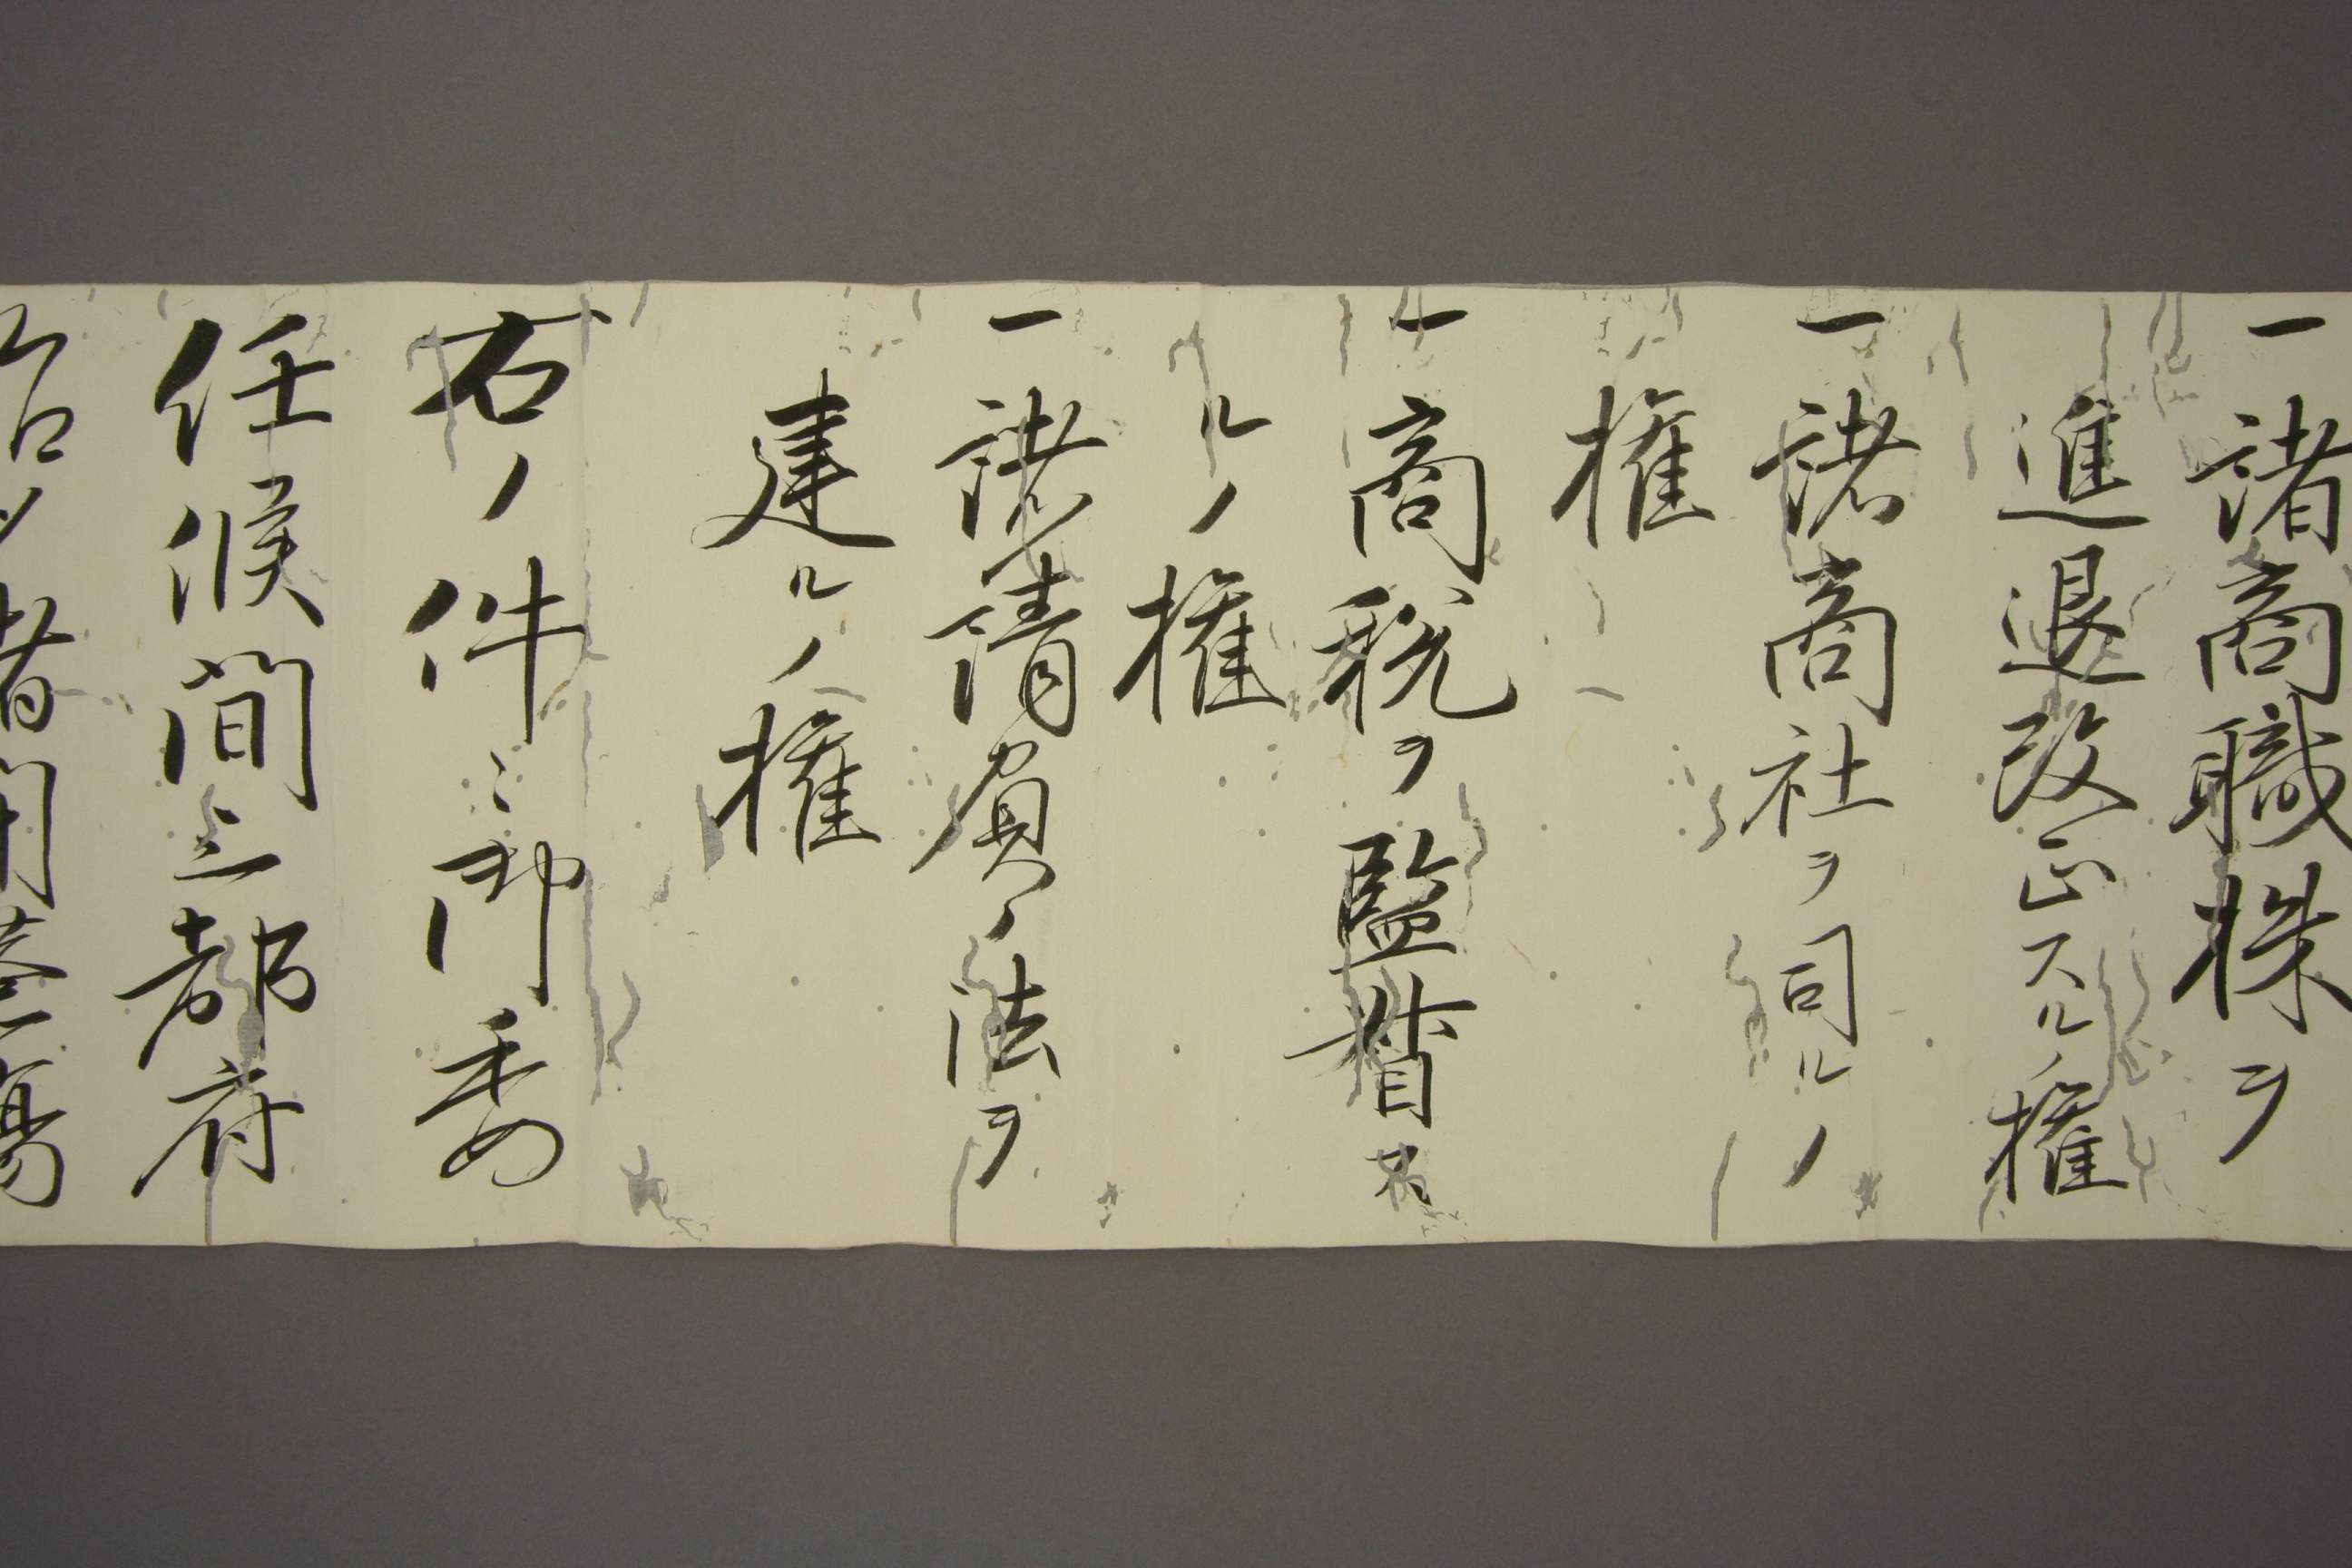 一諸商職株ヲ
進退改正スルノ権
一諸商社ヲ司ルノ
権
一商税ヲ監督ス
ルノ権
一諸請負ノ法ヲ
建ルノ権
右ノ件々御委
任候間三都府
者開蕃